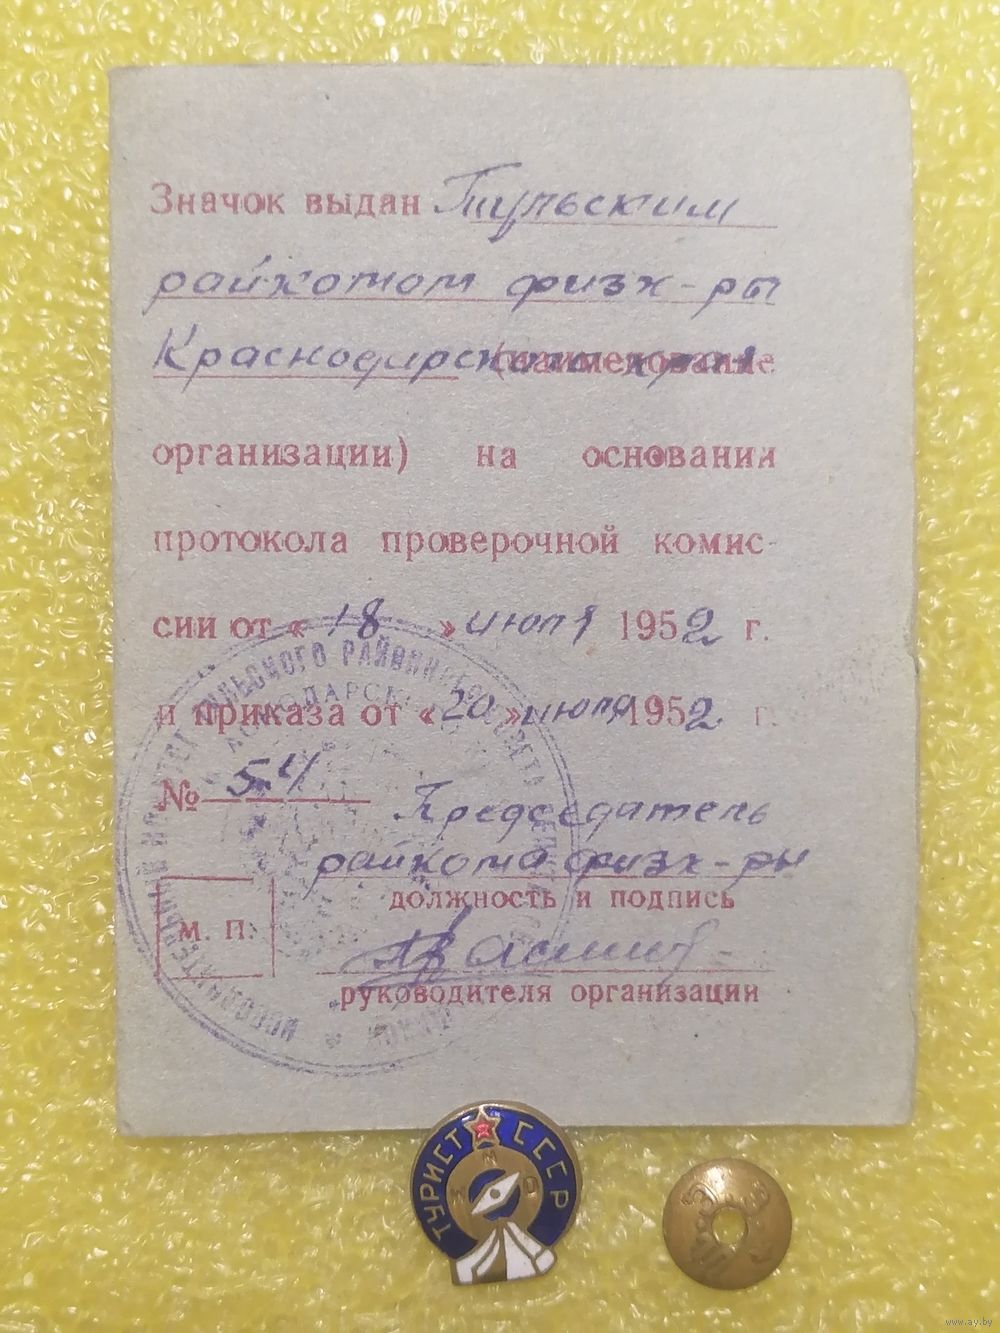 Значок выдан Тульским
райкомом физк-ры
Краснодарского края (наименование
организации) на основании
протокола проверочной комис-
сии от «18» июля 1952 г.
и приказа от «20» июля 1952 г.
№ 54
Председатель
райкома физк-ры
должность и подпись
м. п.
руководителя организации
ТУЛЬСКОГО РАЙОННОГО СОВЕТА
ТУРИСТ СССР
www.ay.by